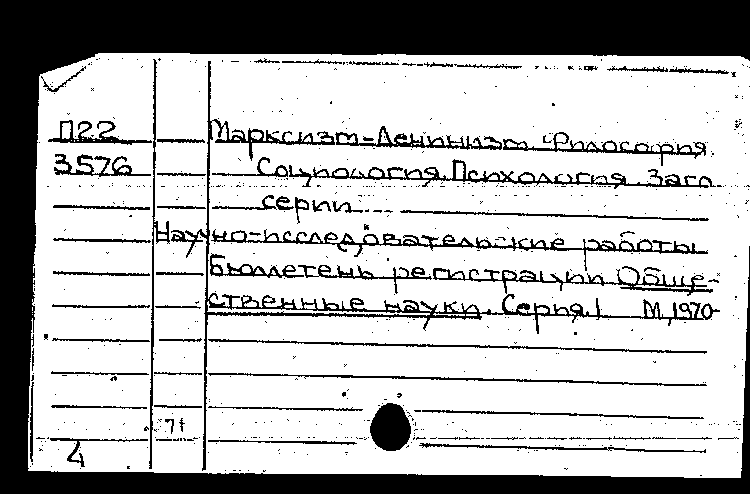 П22 Марксизм-Ленинизм Философия
3576 Социология. Психология Загл
серии
Научно-исследовательские работы
Бюллетень регистрации Обще-
ственные науки. Серия. 1 М, 1970-
71
4